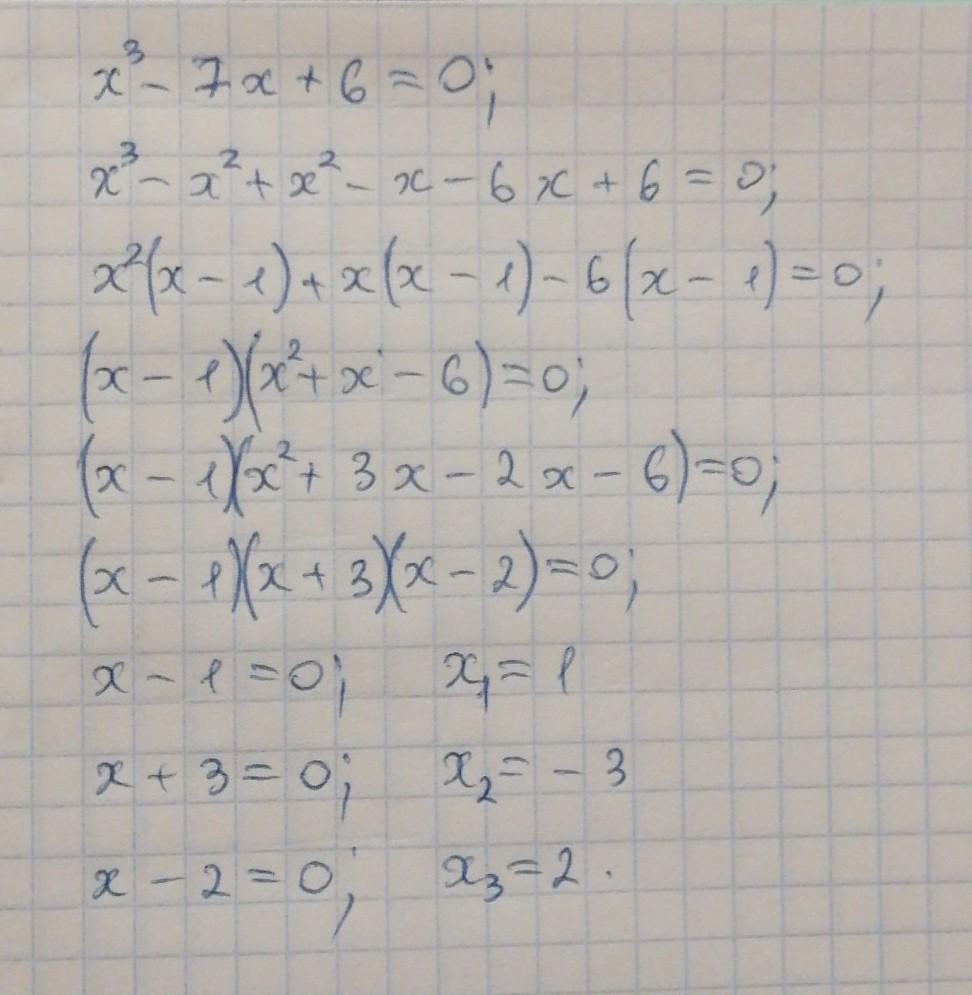 x³ - 7x + 6 = 0;
x³ - x² + x² - x - 6x + 6 = 0;
x²(x - 1) + x(x - 1) - 6(x - 1) = 0;
(x - 1)(x² + x - 6) = 0;
(x - 1)(x² + 3x - 2x - 6) = 0;
(x - 1)(x + 3)(x - 2) = 0;
x - 1 = 0; x₁ = 1
x + 3 = 0; x₂ = - 3
x - 2 = 0; x₃ = 2.